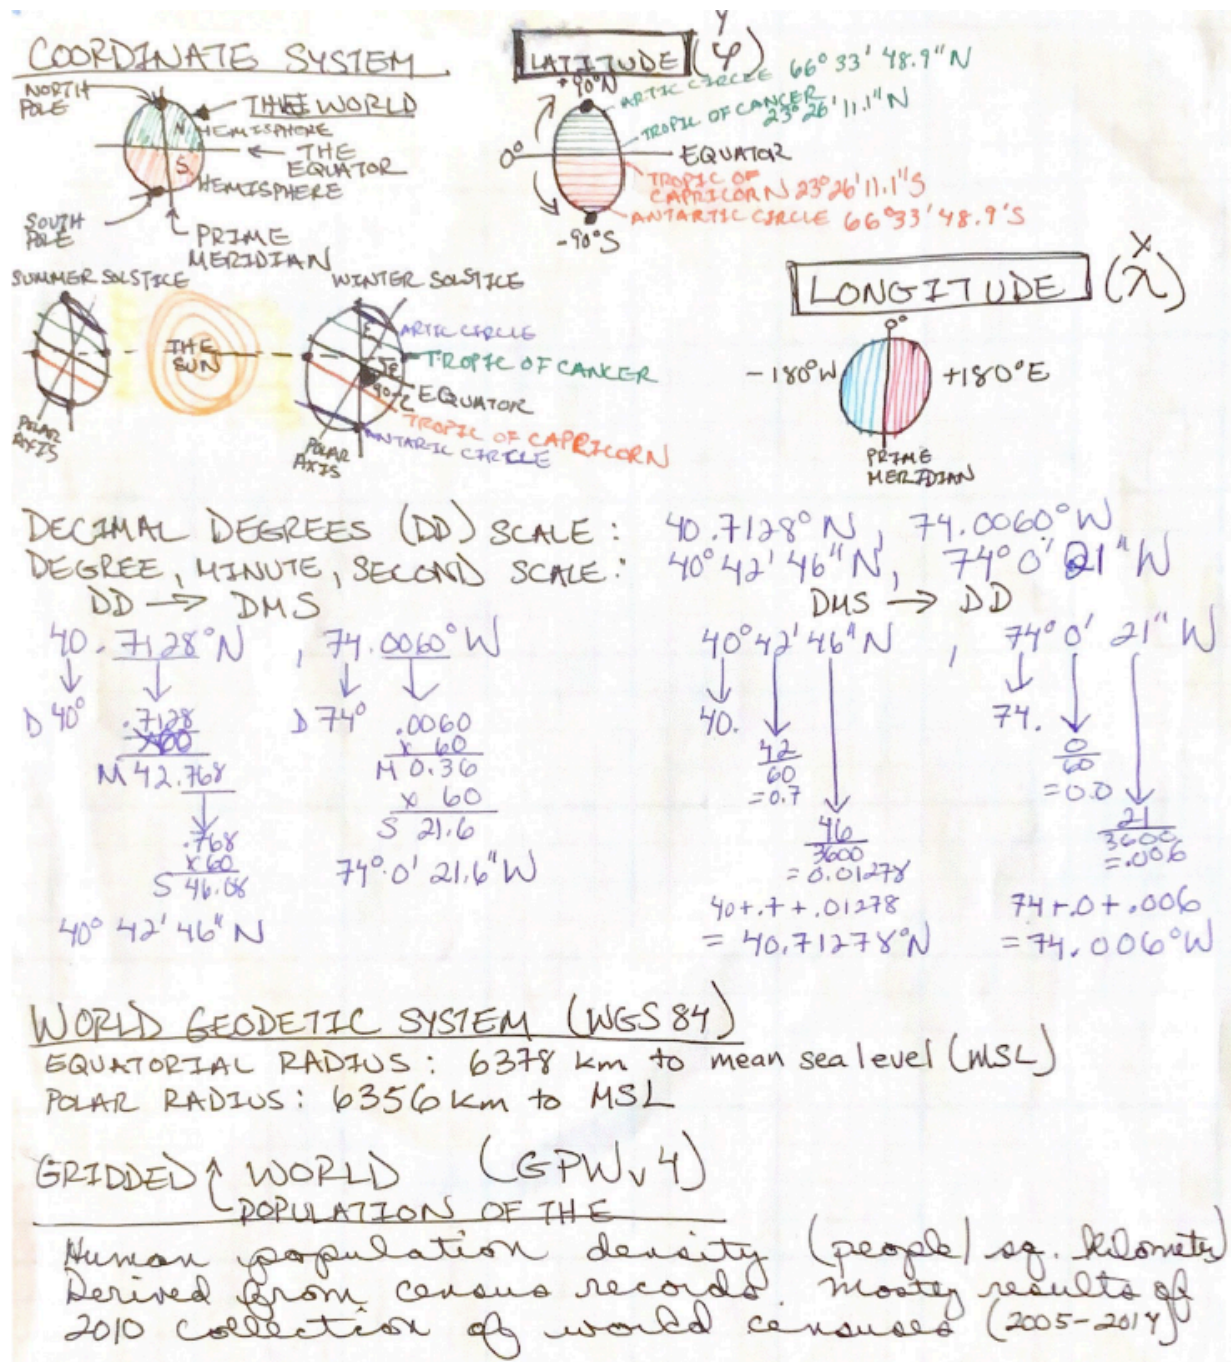 COORDINATE SYSTEM
NORTH
POLE
THE WORLD
N
HEMISPHERE
THE
EQUATOR
S
HEMISPHERE
SOUTH
POLE
PRIME
MERIDIAN
LATITUDE (φ)
y
+90°N
ARTIC CIRCLE 66° 33' 48.9" N
TROPIC OF CANCER
23° 26' 11.1" N
0°
EQUATOR
TROPIC OF
CAPRICORN 23°26'11.1"S
ANTARTIC CIRCLE 66°33'48.9'S
-90°S
SUMMER SOLSTICE
THE
SUN
POLAR
AXIS
WINTER SOLSTICE
ARTIC CIRCLE
TROPIC OF CANCER
EQUATOR
TROPIC OF CAPRICORN
ANTARTIC CIRCLE
POLAR
AXIS
X
LONGITUDE (λ)
0°
-180°W
+180°E
PRIME
MERIDIAN
DECIMAL DEGREES (DD) SCALE: 40.7128° N, 74.0060° W
DEGREE, MINUTE, SECOND SCALE: 40° 42' 46" N, 74° 0' 21" W
DD → DMS
40.7128°N, 74.0060° W
D 40°
.7128
x60
M 42.768
.768
x60
S 46.08
40° 42' 46" N
D 74°
.0060
x 60
M 0.36
x 60
S 21.6
74° 0' 21.6" W
DMS → DD
40° 42' 46" N, 74° 0' 21" W
40.
42
60
= 0.7
46
3600
= 0.01278
40+.7+.01278
= 40.71278°N
74.
0
60
= 0.0
21
3600
= .006
74+.0+.006
= 74.006°W
WORLD GEODETIC SYSTEM (WGS 84)
EQUATORIAL RADIUS: 6378 km to mean sea level (MSL)
POLAR RADIUS: 6356 km to MSL
GRIDDED ↑ WORLD (GPWv4)
POPULATION OF THE
Human population density (people/sq. kilometer)
Derived from census records. Mostly results of
2010 collection of world censuses (2005-2014)